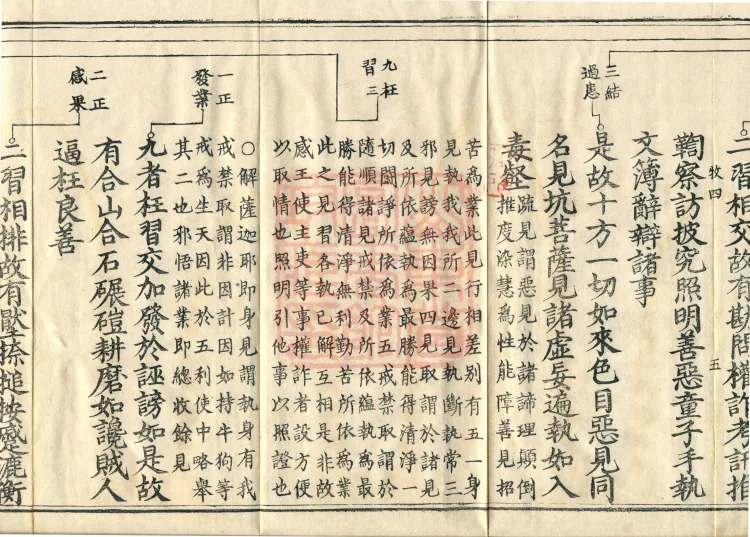 二習相交故有勘問權詐考訊推
牧四 五
鞫察訪披究照明善惡童子手執
文簿辭辯諸事
三結
過患
是故十方一切如來色目惡見同
名見坑菩薩見諸虛妄遍執如入
毒壑
疏見謂惡見於諸諦理顛倒
推度染慧為性能障善見招
苦為業此見行相差別有五一身
見執我我所二邊見執斷執常三
邪見謗無因果四見取謂於諸見
及所依蘊執為最勝能得清淨一
切鬪諍所依為業五戒禁取謂於
隨順諸見戒禁及所依蘊執為最
勝能得清淨無利勤苦所依為業
此之見習各執已解互相是非故
感王使主吏等事權詐者設方便
以取情也照明引他事以照證也
九枉
習三
○解薩迦耶即身見謂執身有我
戒禁取謂非因計因如持牛狗等
戒為生天因此於五利使中略舉
其二也邪悟諸業即總收餘見
一正
發業
九者枉習交加發於誣謗如是故
有合山合石碾磑耕磨如讒賊人
逼枉良善
二正
感果
二習相排故有捺搥按蹙漉衡